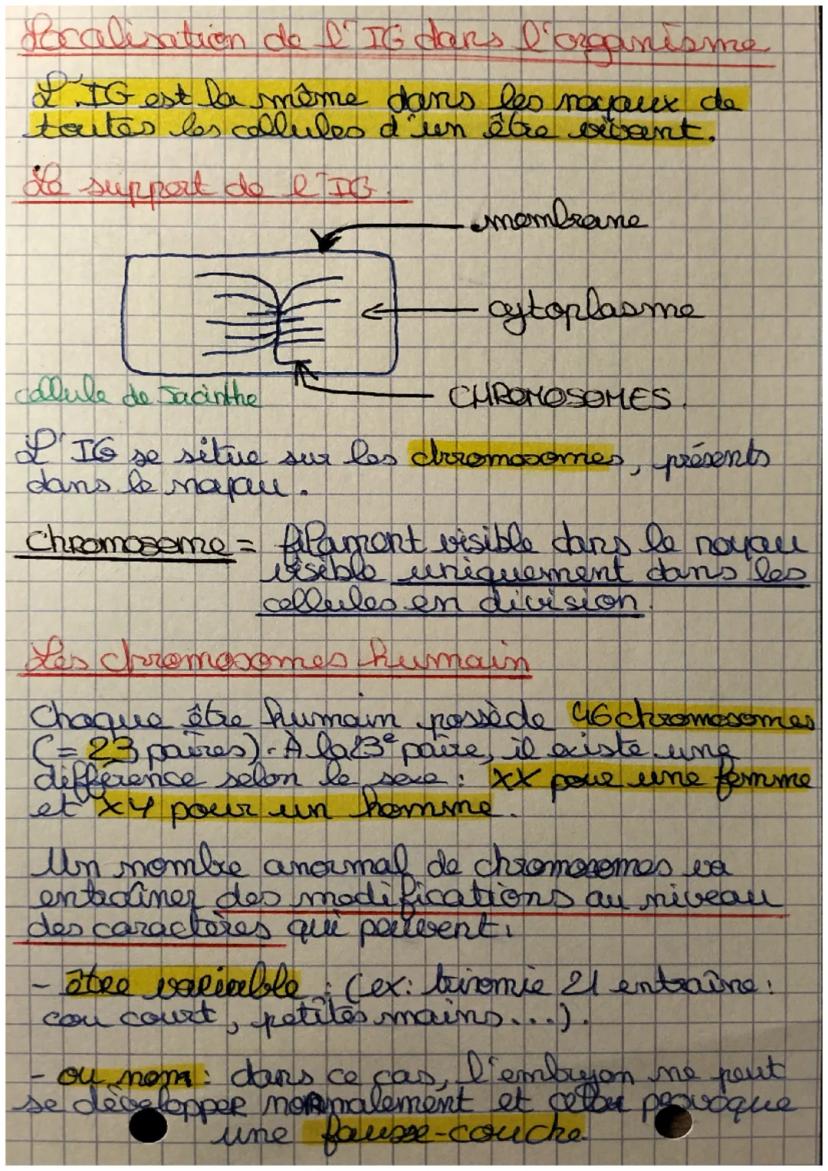 Localisation de l'IG dans l'organisme
L'IG est la même dans les noyaux de
toutes les cellules d'un être vivant.
Le support de l'IG.
membrane
cytoplasme
cellule de Jacinthe
CHROMOSOMES.
L'IG se situe sur les chromosomes, présents
dans le noyau.
Chromosome = filament visible dans le noyau
visible uniquement dans les
cellules en division.
Les chromosomes humain
Chaque être humain possède 46 chromosomes
(= 23 paires). À la 23e paire, il existe une
différence selon le sexe : XX pour une femme
et XY pour un homme.
Un nombre anormal de chromosomes va
entraîner des modifications au niveau
des caractères qui peuvent :
- être variable : (ex: trisomie 21 entraîne :
cou court, petites mains...).
- ou non : dans ce cas, l'embryon ne peut
se développer normalement et cela provoque
une fausse-couche.